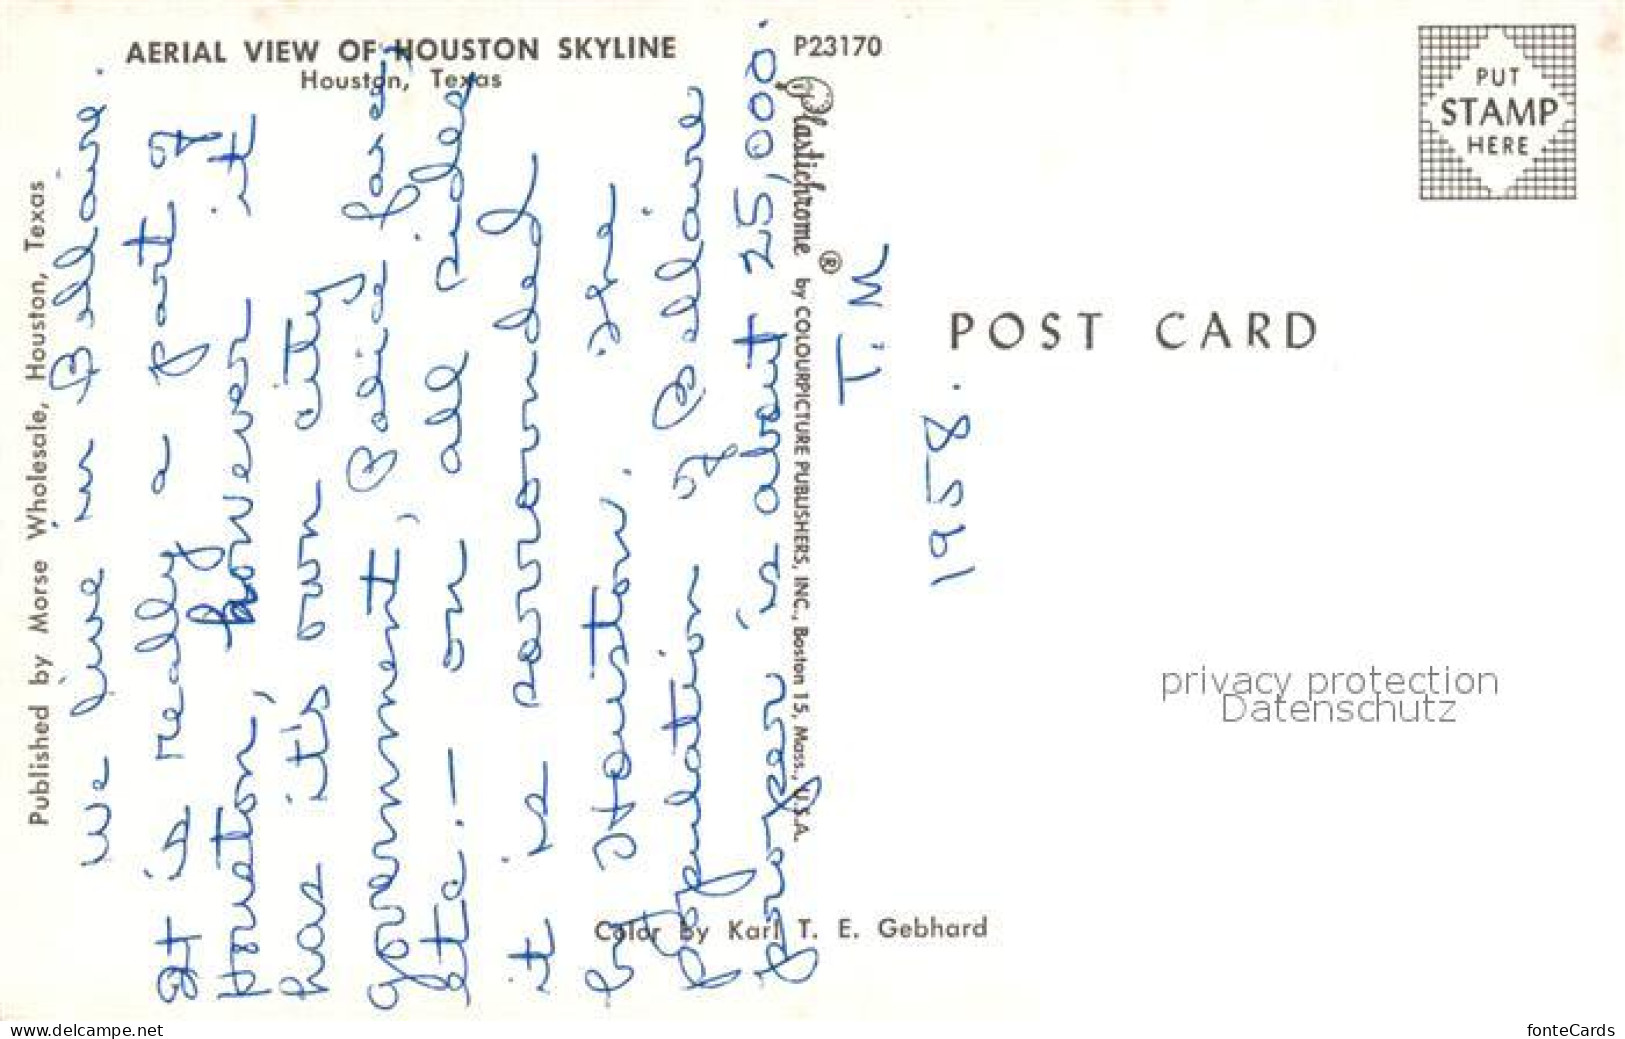 AERIAL VIEW OF HOUSTON SKYLINE
Houston, Texas
P23170
Published by Morse Wholesale, Houston, Texas
we live in Bellaire.
It is really a part of
Houston, however it
has it's own city
government, Police force,
etc. - on all sides
it is surrounded
by Houston. The
population of Bellaire
proper is about 25,000.
Plastichrome ® by COLOURPICTURE PUBLISHERS, INC., Boston 15, Mass., U.S.A.
T.M
1958.
Color by Karl T. E. Gebhard
PUT
STAMP
HERE
POST CARD
privacy protection
Datenschutz
www.delcampe.net
fonteCards